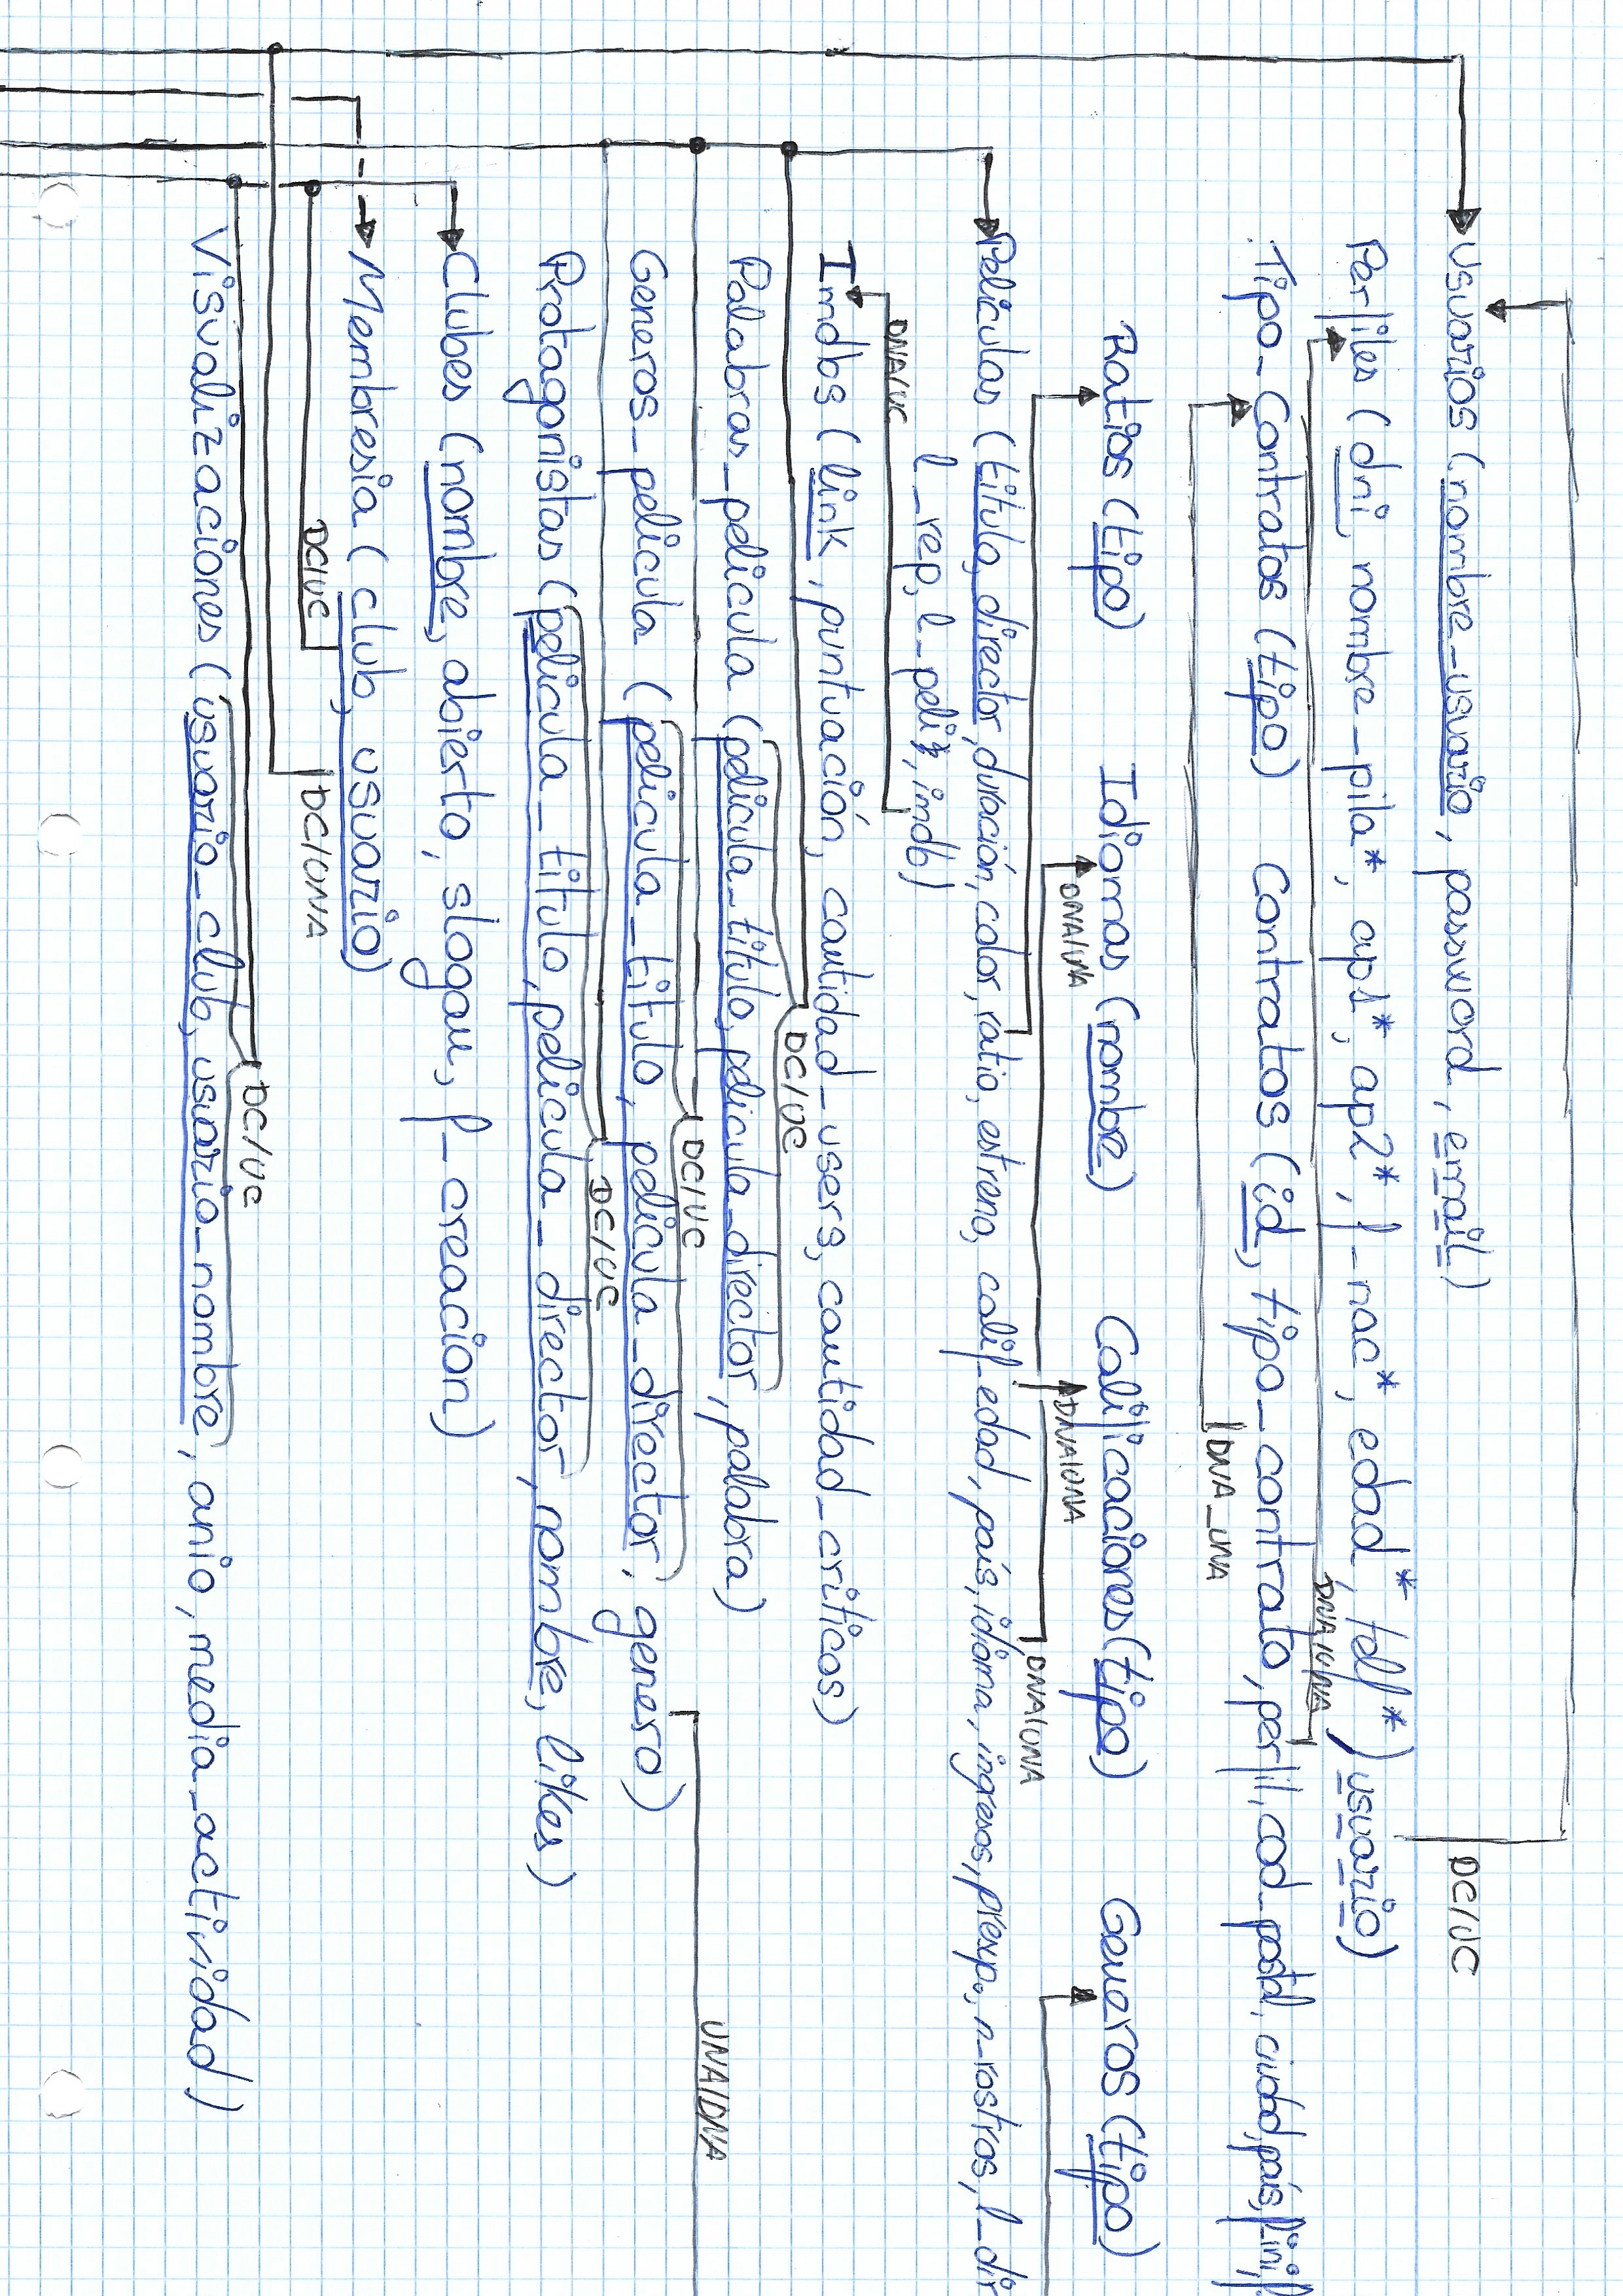 Usuarios (nombre_usuario, password, email)
DC/UC
Perfiles (dni, nombre_pila*, ap1*, ap2*, f_nac*, edad*, telf*) usuario)
DNA/UNA
Tipo_Contratos (tipo) Contratos (id, tipo_contrato, perfil, cod_postal, ciudad, país, f_ini, f
DNA_UNA
Ratios (tipo) Idiomas (nombre) Calificaciones (tipo) Generos (tipo)
DNA/UNA DNA/UNA
DNA/UNA
Peliculas (titulo, director, duración, color, ratio, estreno, calif_edad, país, idioma, ingresos, presup., n_rostros, l_dir
l_rep, l_peli, imdb)
DNA/UC
Imdbs (link, puntuación, cantidad_users, cantidad_criticos)
DC/UC
Palabras_pelicula (pelicula_titulo, pelicula_director, palabra)
DC/UC UNA/DNA
Generos_pelicula (pelicula_titulo, pelicula_director, genero)
DC/UC
Protagonistas (pelicula_titulo, pelicula_director, nombre, likes)
Clubes (nombre, abierto, slogan, f_creacion)
Membresia (club, usuario)
DC/UC DC/UNA
DC/UC
Visualizaciones (usuario_club, usuario_nombre, anio, media_actividad)